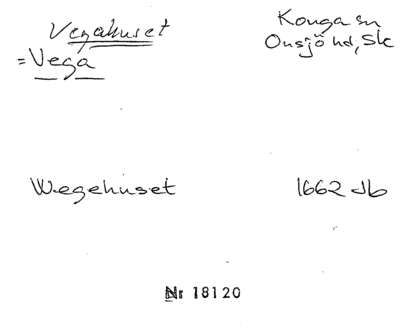 Vegahuset
Konga sn
Onsjö hd, Sk
=Vega
Wegehuset
1662 Jb
Nr 18120